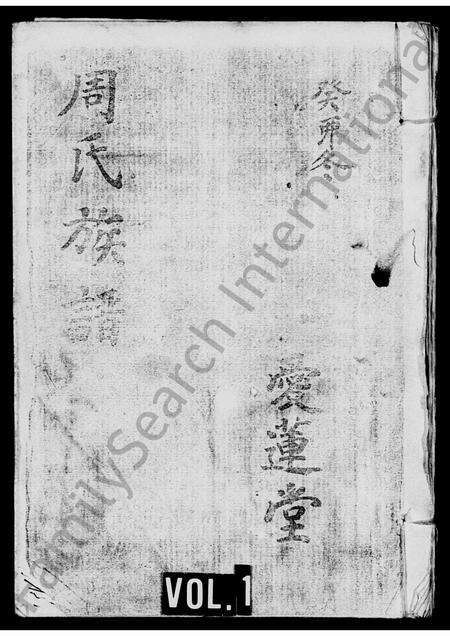 癸卯冬
愛蓮堂
周氏族譜
VOL. 1
FamilySearch International